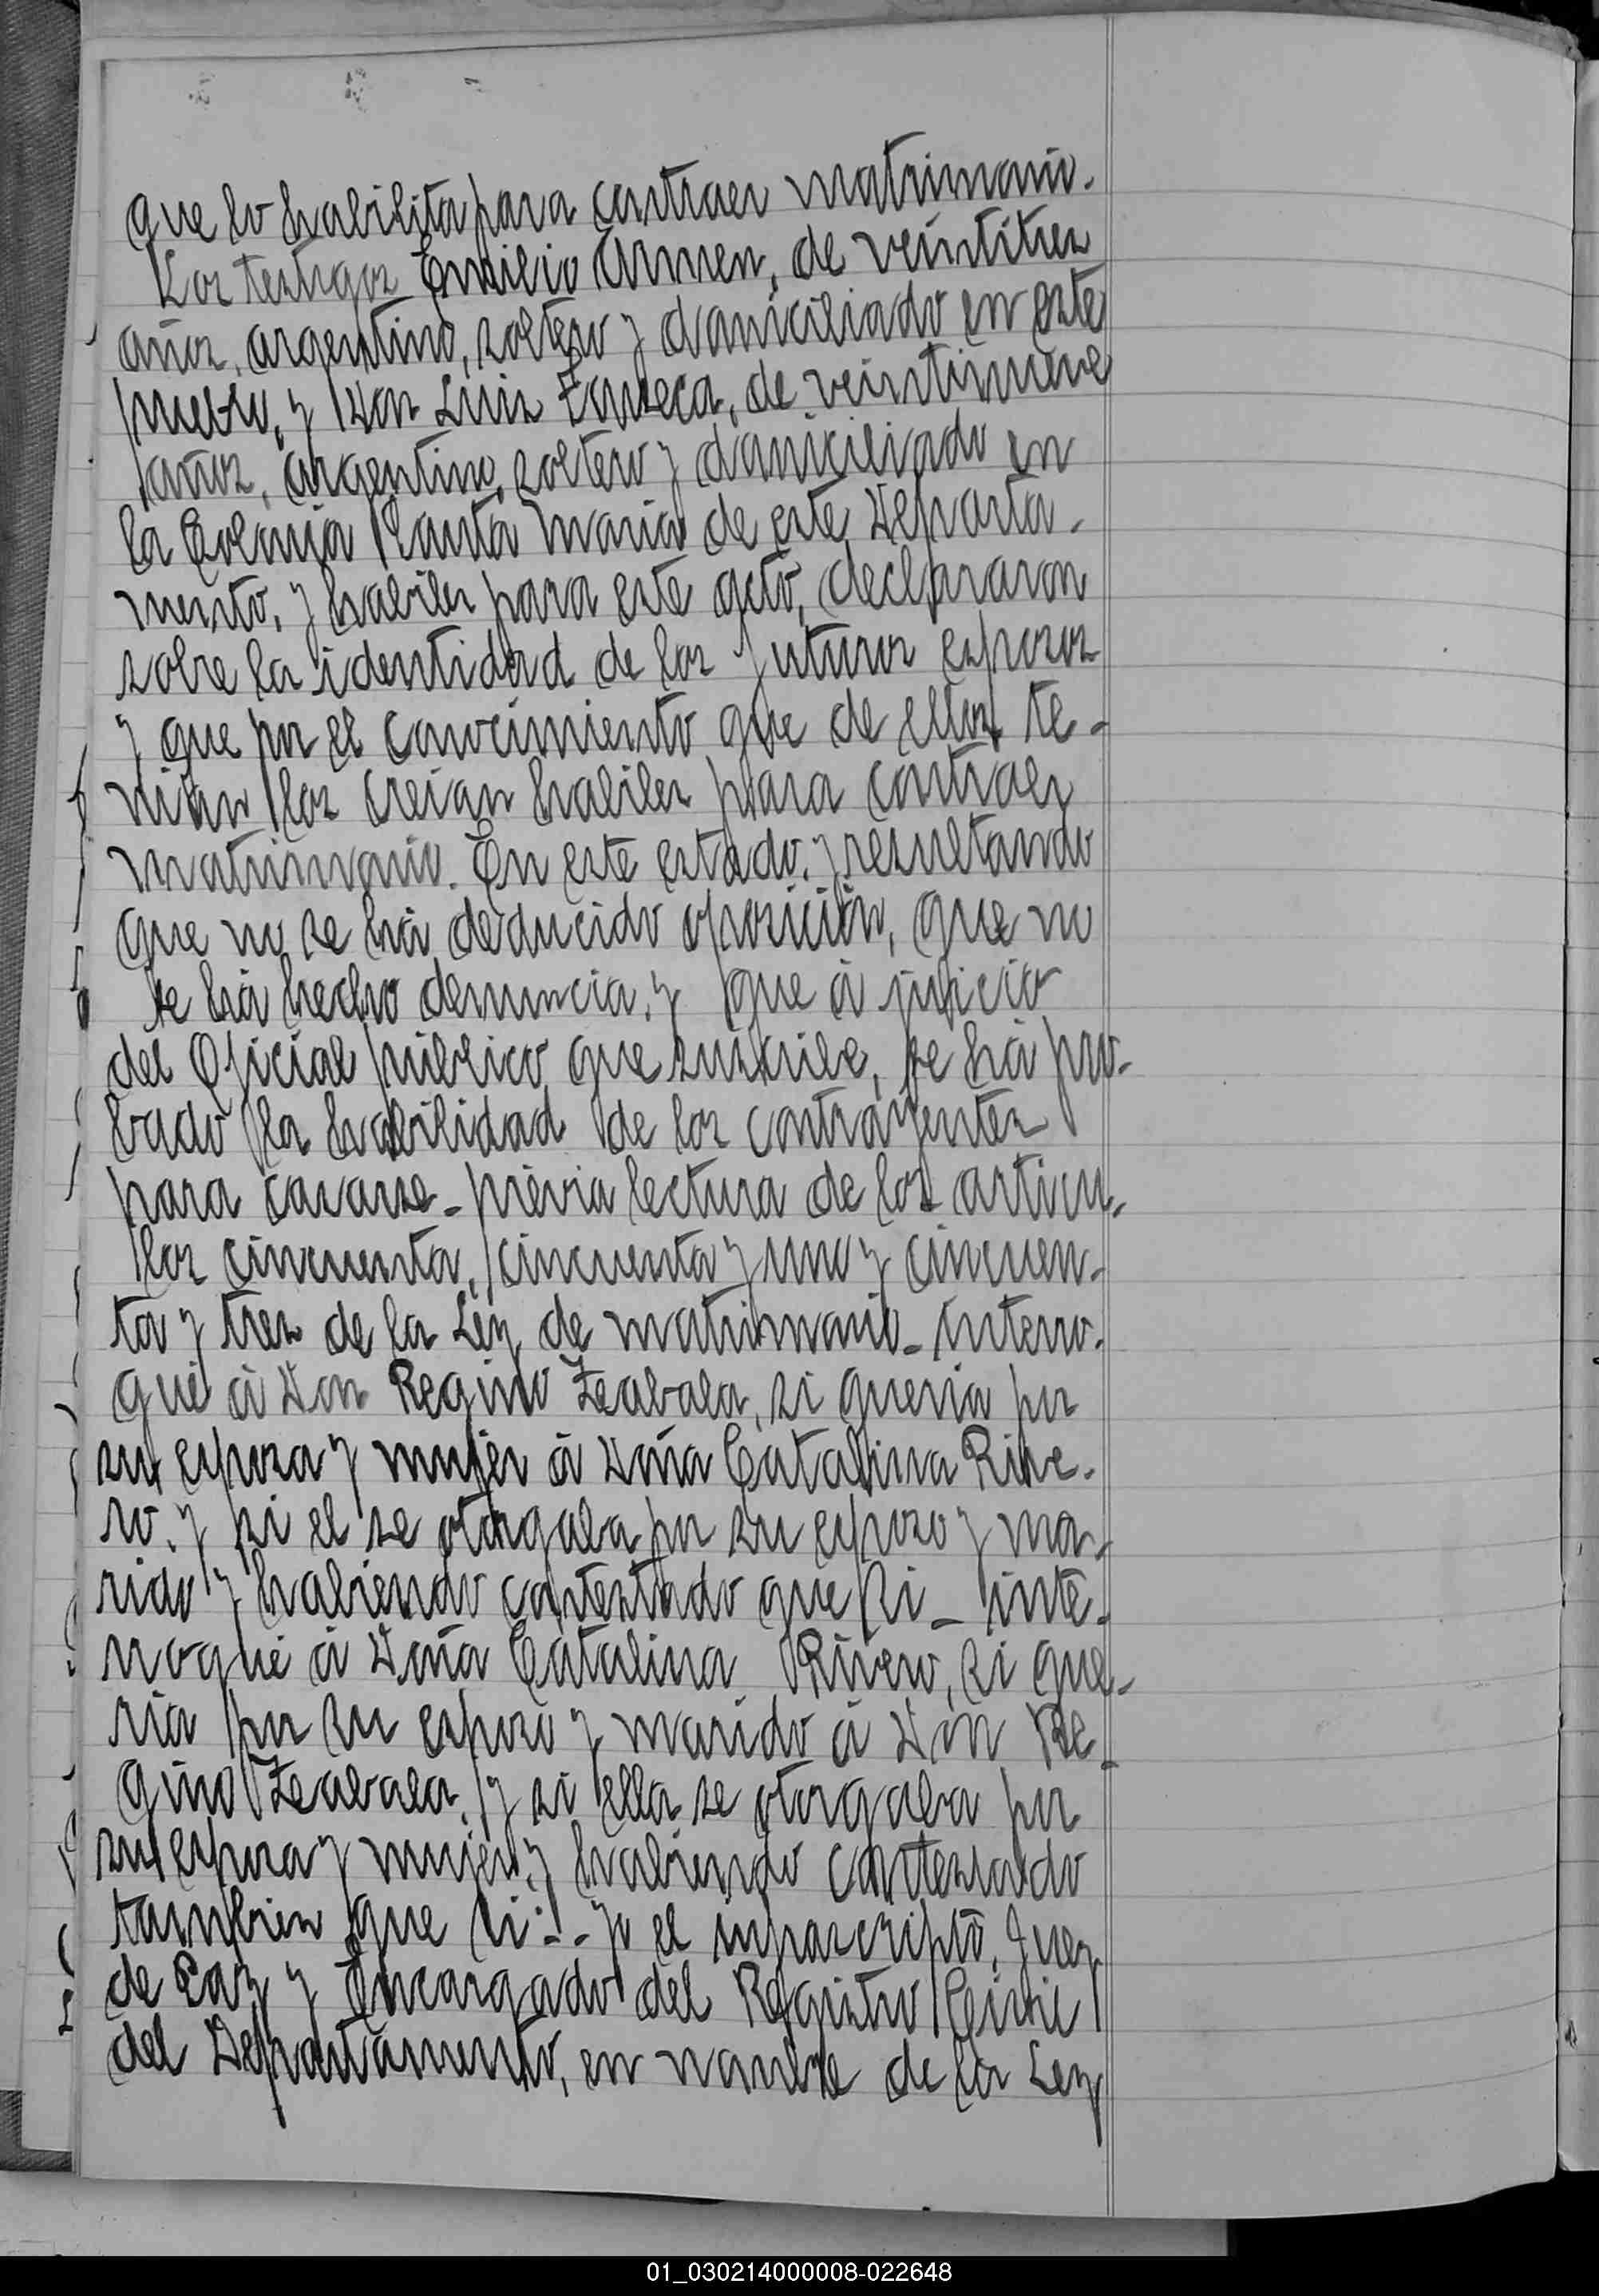 que lo habilita para contraer matrimonio.
Los testigos Emilio Armen, de veintitres
años, argentino, soltero y domiciliado en este
pueblo, y Don Luis Fonseca, de veintinueve
años, argentino, soltero y domiciliado en
la Colonia Santa Maria de este Departa-
mento, y habiles para este acto, declararon
sobre la identidad de los futuros esposos
y que por el conocimiento que de ellos te-
nian los creian habiles para contraer
matrimonio. En este estado, y resultando
que no se há deducido oposición, que no
se há hecho denuncia, y que á juicio
del Oficial público que suscribe, se há pro-
bado la habilidad de los contrayentes
para casarse - prévia lectura de los articu-
los cincuenta, cincuenta y uno y cincuen-
ta y tres de la Ley de matrimonio - interro-
gué á Don Regino Zeabala, si queria por
su esposa y mujer á Doña Catalina Rive-
ro, y si el se otorgaba por su esposo y ma-
rido y habiendo contestado que si - inte-
rrogué á Doña Catalina Rivero, si que-
ria por su esposo y marido á Don Re-
gino Zeabala, y si ella se otorgaba por
su esposa y mujer, y habiendo contestado
tambien que si: - yo el infrascripto, Juez
de Paz y Encargado del Registro Civil
del Departamento, en nombre de la Ley
01_030214000008-022648